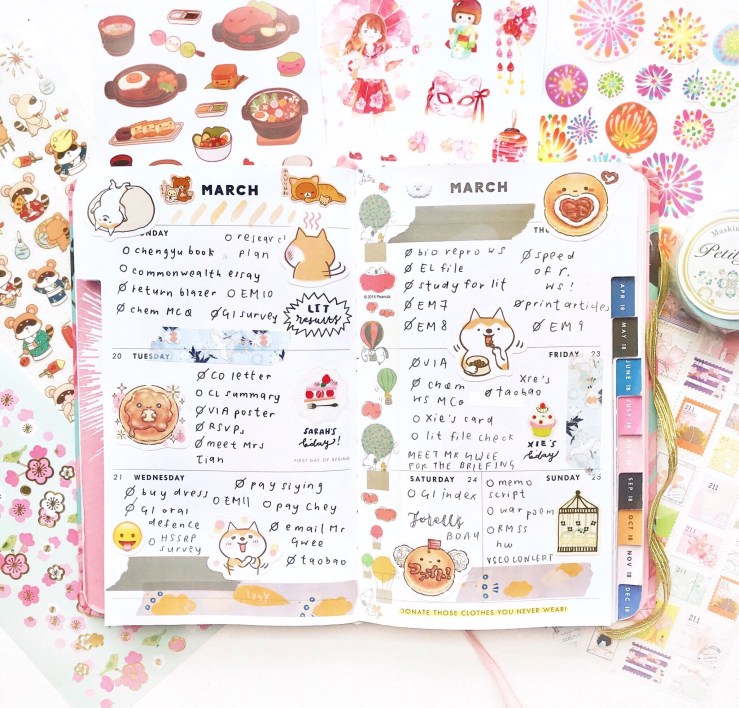 MARCH
NDAY
chengyu book
research plan
commonwealth essay
return blazer
EM10
chem MCQ
GI survey
LIT results
20 TUESDAY
CO letter
CL summary
VIA poster
RSVPs
meet Mrs Tian
SARAH'S bday!
FIRST DAY OF SPRING
21 WEDNESDAY
buy dress
pay siying
GI oral defence
EM11
pay chey
HSSRP survey
email Mr Gwee
taobao
MARCH
THU
bio repro ws
speed of r. ws!
EL file
study for lit
EM7
print articles
EM8
EM9
© 2018 Peanuts
FRIDAY 23
VIA
chem ws MCQ
Xie's taobao
Xie's card
lit file check
XIE'S bday
MEET MR GWEE FOR THE BRIEFING
SATURDAY 24
GI index
BDAY
SUNDAY 25
memo script
war poem
RMSS hw
VSCO CONCERT
DONATE THOSE CLOTHES YOU NEVER WEAR!
APR 18
MAY 18
JUNE 18
JULY 18
SEP 18
OCT 18
NOV 18
DEC 18
Maskin
Petit
211
211
211